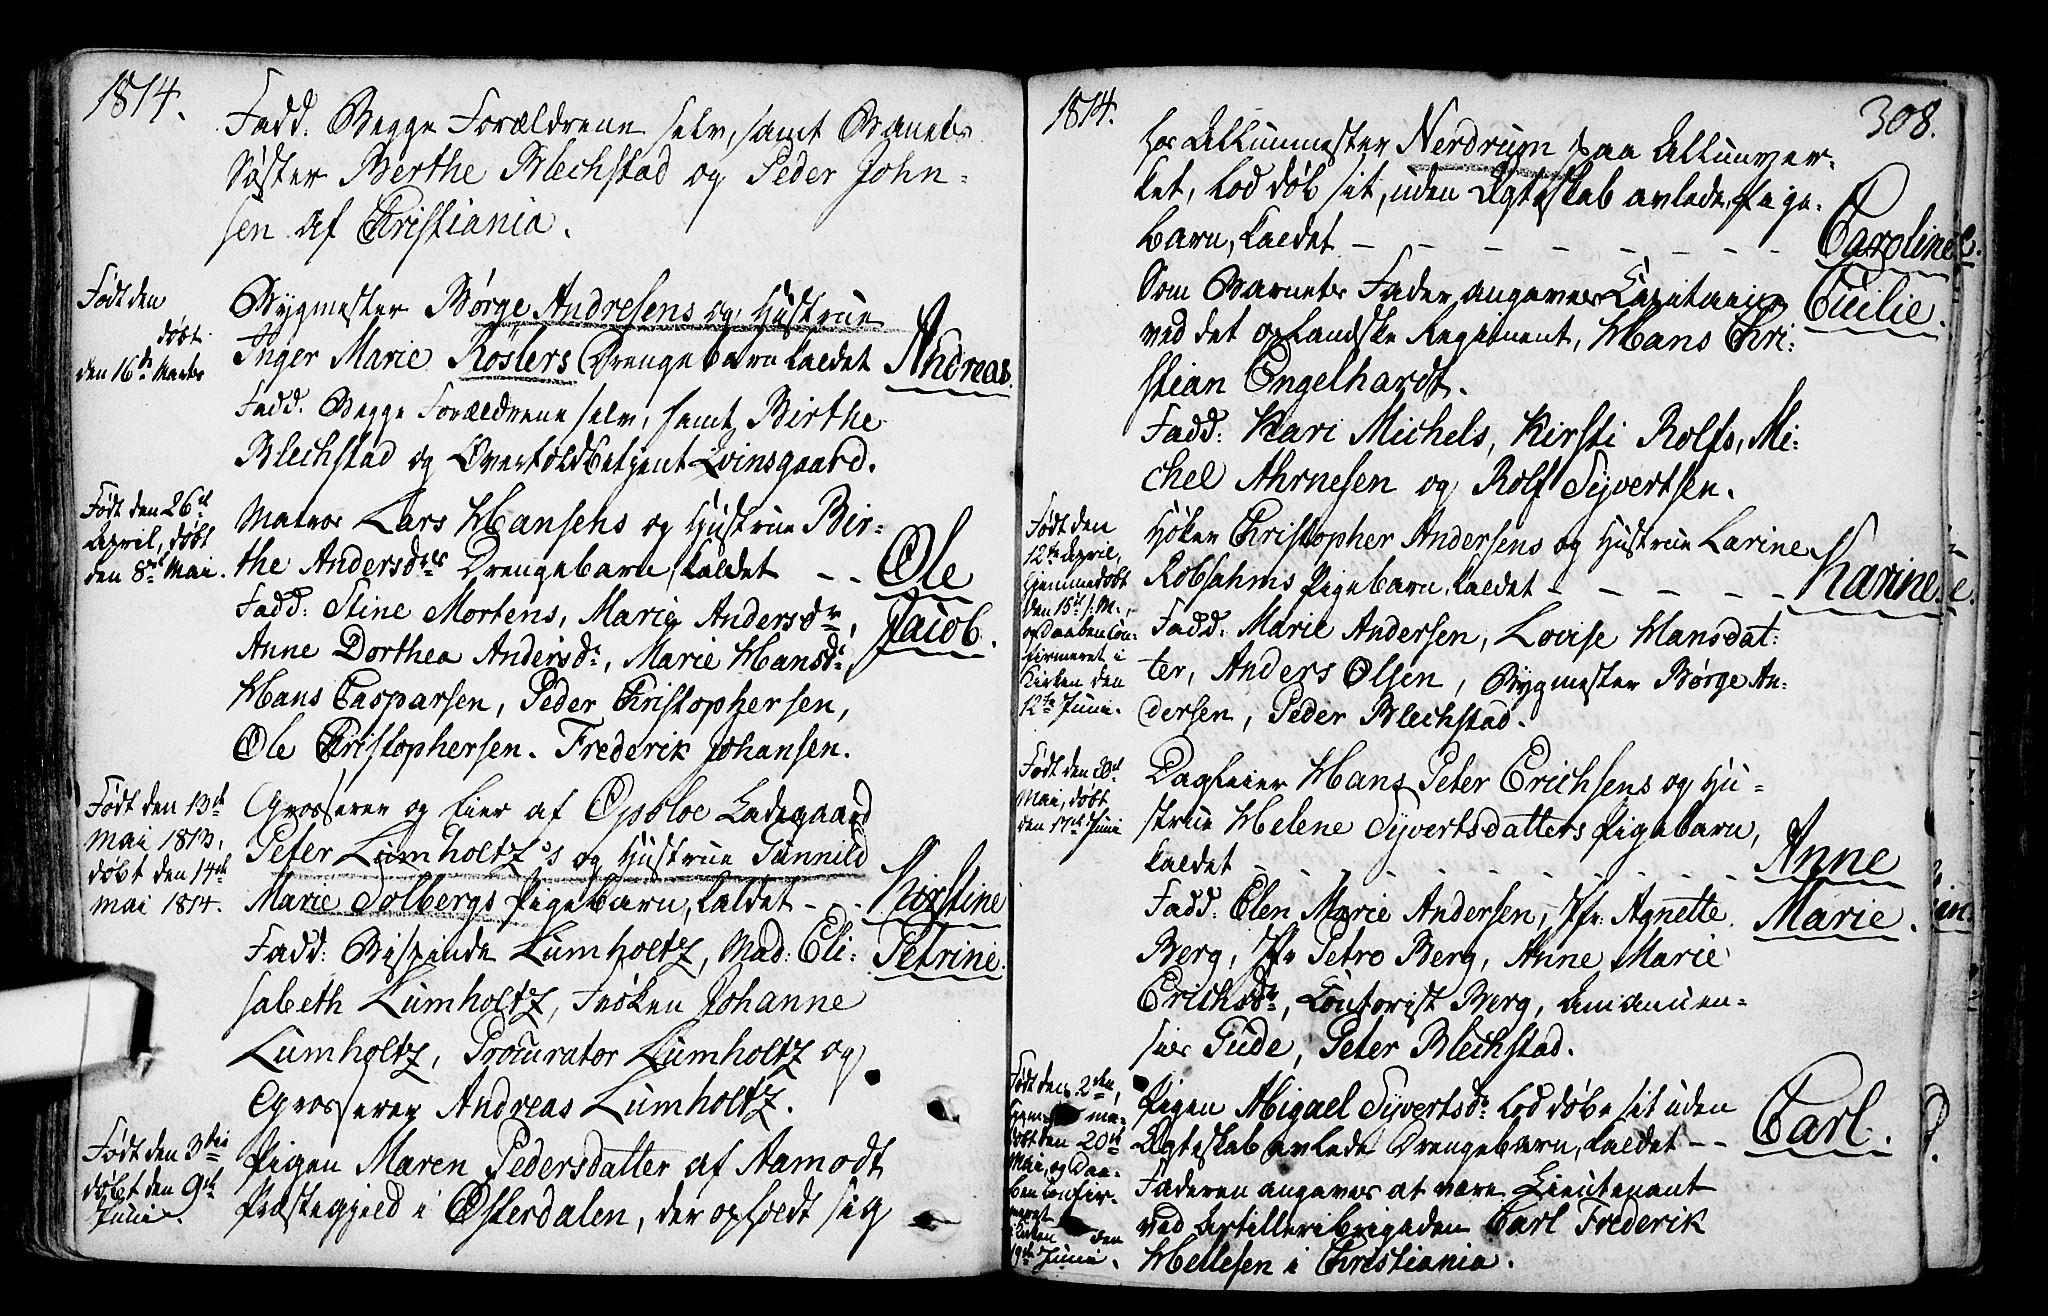 1814.
Fadd. Begge Forældrene selv, samt Barnets
Søster Berthe Blechstad og Peder John-
sen af Christiania.
Født den
døbt
den 16de Marts
Bygmester Børge Andresens og Hustrue
Inger Marie Röslers Drengebarn kaldet
Andreas.
Fadd. Begge Forældrene selv, samt Birthe
Blechstad og Overtoldbetjent Evinsgaard.
Født den 26de
April, døbt
den 8de Mai.
Matros Lars Hansens og Hustrue Bir-
the Andersdrs Drengebarn, kaldet - -
Ole
Jacob.
Fadd: Stine Mortens, Marie Andersdr,
Anne Dorthea Andersdr, Marie Hansdr,
Hans Casparsen, Peder Christophersen,
Ole Christophersen. Frederik Johansen.
Født den 13de
Mai 1813,
døbt den 14de
Mai 1814.
Grosserer og Eier af Opsloe Ladegaard
Peter Lumholtz's og Hustrue Gunnild
Marie Solbergs Pigebarn, kaldet - -
Kirstine
Petrine.
Fadd: Bispinde Lumholtz, Mad: Eli-
sabeth Lumholtz, Frøken Johanne
Lumholtz, Procurator Lumholtz og
Grosserer Andreas Lumholtz.
Født den 3die
døbt den 9de
Junii.
Pigen Maren Pedersdatter af Aamodt
Præstegjeld i Østerdalen, der opholdt sig
1814.
308.
hos Allunmester Nerdrum paa Allunver-
ket, lod døbe sit, uden Ægteskab avlede, Pige-
barn, kaldet - - - - - - - -
Caroline
Cicilie.
Som Barnets Fader, angaves Capitain
ved det oplandske Regiment, Hans Chri-
stian Engelhardt.
Fadd: Kari Michels, Kirsti Rolfs, Mi-
chel Ahrnesen og Rolf Syvertsen.
Født den
12te April,
hjemmedøbt
den 15de s. M.,
og Daaben con-
firmeret i
Kirken den
12te Junii.
Høker Christopher Andersens og Hustrue Larine
Robsahms Pigebarn, kaldet - - - - -
Karine.
Fadd. Marie Andersen, Lovise Hansdat-
ter, Anders Olsen, Bygmester Børge An-
dersen, Peder Blechstad.
Født den 20de
Mai, døbt
den 17de Junii
Dagleier Hans Peter Erichsens og Hu-
strue Helene Syvertsdatters Pigebarn,
kaldet - - - - - - - -
Anne
Marie.
Fadd: Elen Marie Andersen, Jfr. Agnette
Berg, Jfr Petro Berg, Anne Marie
Erichsdr, Contorist Berg, Amanuen-
sies Gude, Peter Blechstad.
Født den 2den,
ma-
døbt den 20de
Mai, og Daa-
ben confir-
meret
Kirken den
19de Junii.
Pigen Abigael Syvertsdr lod døbe sit uden
Ægteskab avlede Drengebarn, kaldet - -
Carl.
Faderen angaves at være Lieutenant
ved Artilleribrigaden Carl Frederik
Hellesen i Christiania.